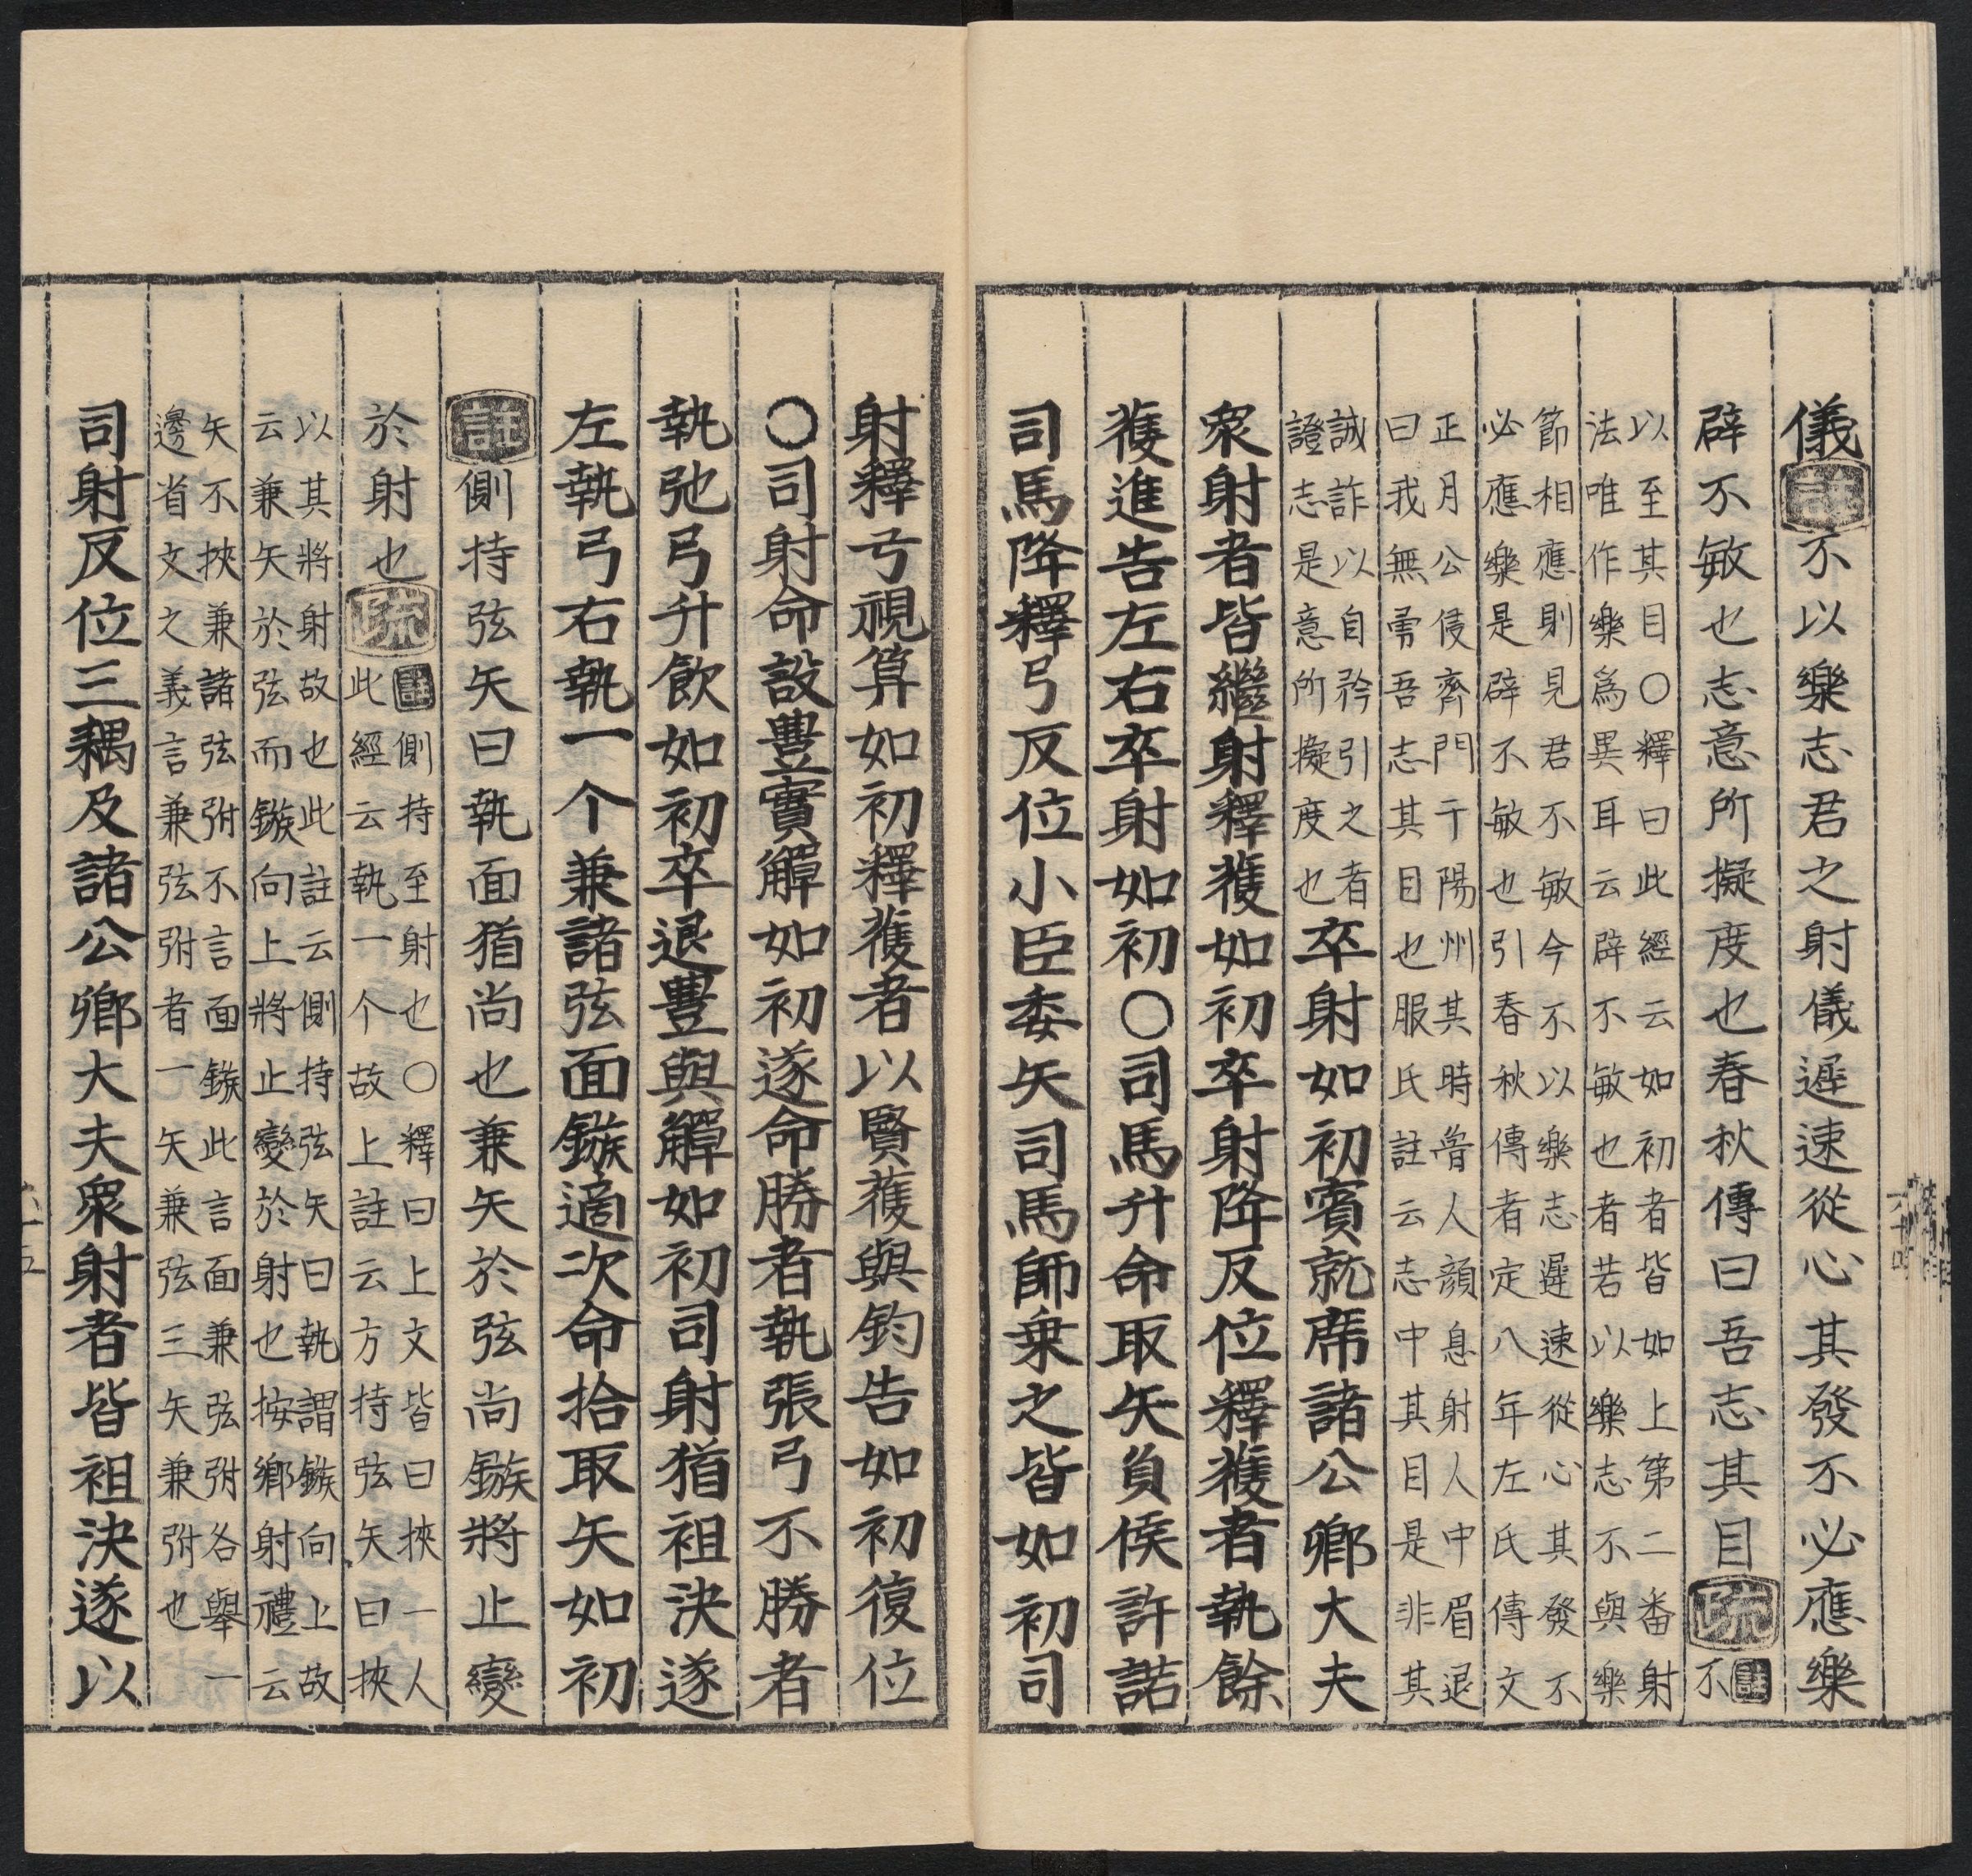 儀註不以樂志君之射儀遲速從心其發不必應樂
辟不敏也志意所擬度也春秋傳曰吾志其目疏註不
以至其目○釋曰此經云如初者皆如上第二番射
法唯作樂爲異耳云辟不敏也者若以樂志不與樂
節相應則見君不敏今不以樂志遲速從心其發不
必應樂是辟不敏也引春秋傳者定八年左氏傳文
正月公侵齊門于陽州其時魯人顔息射人中眉退
曰我無勇吾志其目也服氏註云志中其目是非其
誠詐以自矜引之者
證志是意所擬度也卒射如初賓就席諸公卿大夫
眾射者皆繼射釋獲如初卒射降反位釋獲者執餘
獲進告左右卒射如初○司馬升命取矢負侯許諾
司馬降釋弓反位小臣委矢司馬師乗之皆如初司
射釋弓視算如初釋獲者以賢獲與鈞告如初復位
○司射命設豐實觶如初遂命勝者執張弓不勝者
執弛弓升飲如初卒退豐與觶如初司射猶袒決遂
左執弓右執一个兼諸弦面鏃適次命拾取矢如初
註側持弦矢曰執面猶尚也兼矢於弦尚鏃將止變
於射也疏註側持至射也○釋曰上文皆曰挾一人
此經云執一个故上註云方持弦矢曰挾
以其將射故也此註云側持弦矢曰執謂鏃向上故
云兼矢於弦而鏃向上將止變於射也按鄉射禮云
矢不挾兼諸弦弣不言面鏃此言面兼弦弣各舉一
邊省文之義言兼弦弣者一矢兼弦三矢兼弣也
司射反位三耦及諸公卿大夫眾射者皆袒決遂以